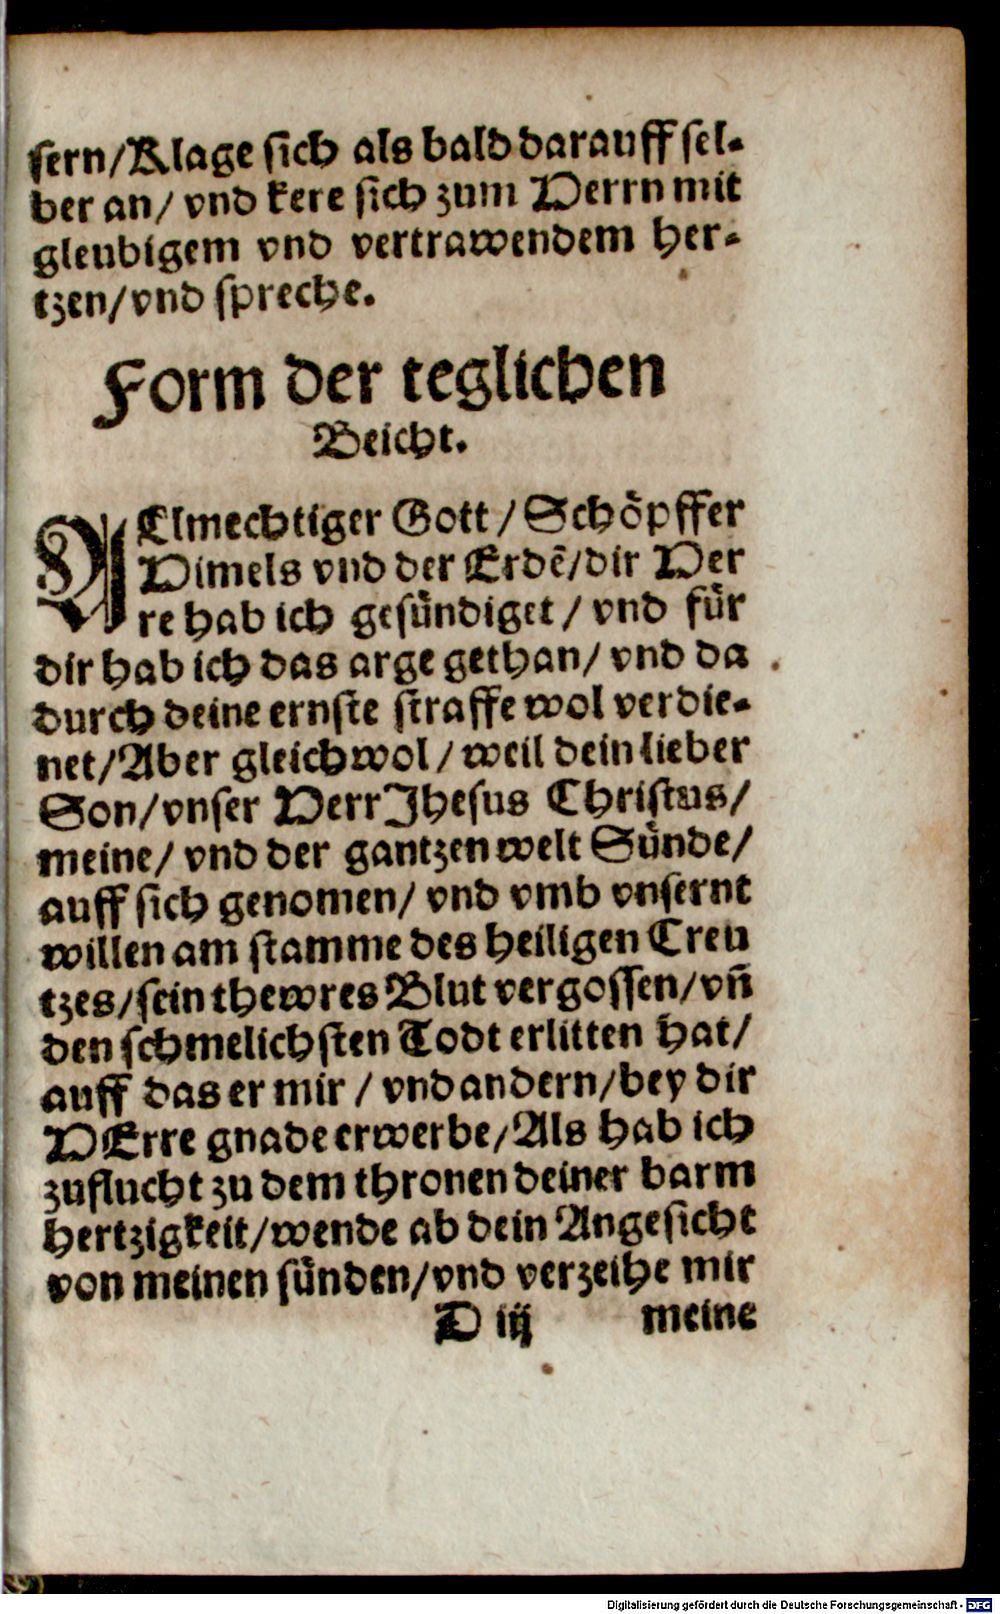 sern/Klage sich als bald darauff sel-
ber an/ vnd kere sich zum Herrn mit
gleubigem vnd vertrawendem her-
tzen/vnd spreche.
Form der teglichen
Beicht.
ALlmechtiger Gott/Schöpffer
Himels vnd der Erdē/dir Her
re hab ich gesündiget/ vnd für
dir hab ich das arge gethan/ vnd da
durch deine ernste straffe wol verdie-
net/Aber gleichwol/ weil dein lieber
Son/vnser Herr Jhesus Christus/
meine/ vnd der gantzen welt Sünde/
auff sich genomen/ vnd vmb vnsernt
willen am stamme des heiligen Creu
tzes/sein thewres Blut vergossen/vn̄
den schmelichsten Todt erlitten hat/
auff das er mir/ vnd andern/bey dir
HErre gnade erwerbe/Als hab ich
zuflucht zu dem thronen deiner barm
hertzigkeit/wende ab dein Angesicht
von meinen sünden/vnd verzeihe mir
D iij meine
Digitalisierung gefördert durch die Deutsche Forschungsgemeinschaft - DFG